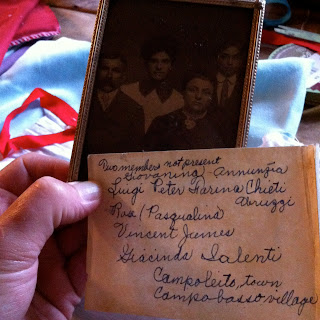 Two members not present
Giovanina Annunzia
Luigi Peter Farina Chieti
Abruzzi
Rose (Pasqualina)
Vincent James
Giacinda Salenti
Campoleito, town
Campobasso village